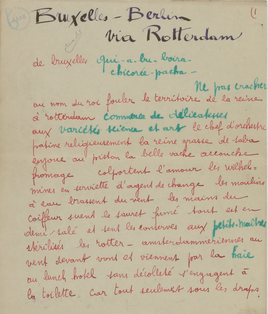 (1
Bruxelles – Berlin
via Rotterdam
de bruxelles qui-a-bu-boira-
chicorée-pacha-
Ne pas cracher
au nom du roi fouler le territoire de la reine
à rotterdam commerce de délicatesses
aux variétés science et art le chef d'orchestre
patine religieusement la reine grasse de saba
au piston la belle vache accouche
fromage colportent l'amour les
mines en serviette d'agent de change les moulins
à eau brassent du vent les mains du
coiffeur suent le sauret fumé tout est en
demi-salé et sent les conserves aux petits-maîtres
stérilisés les rotter-
au vent devant vont et viennent par la haie
au lunch hotel sans décolleté s'engagent à
la toilette car tout seulement sous les draps